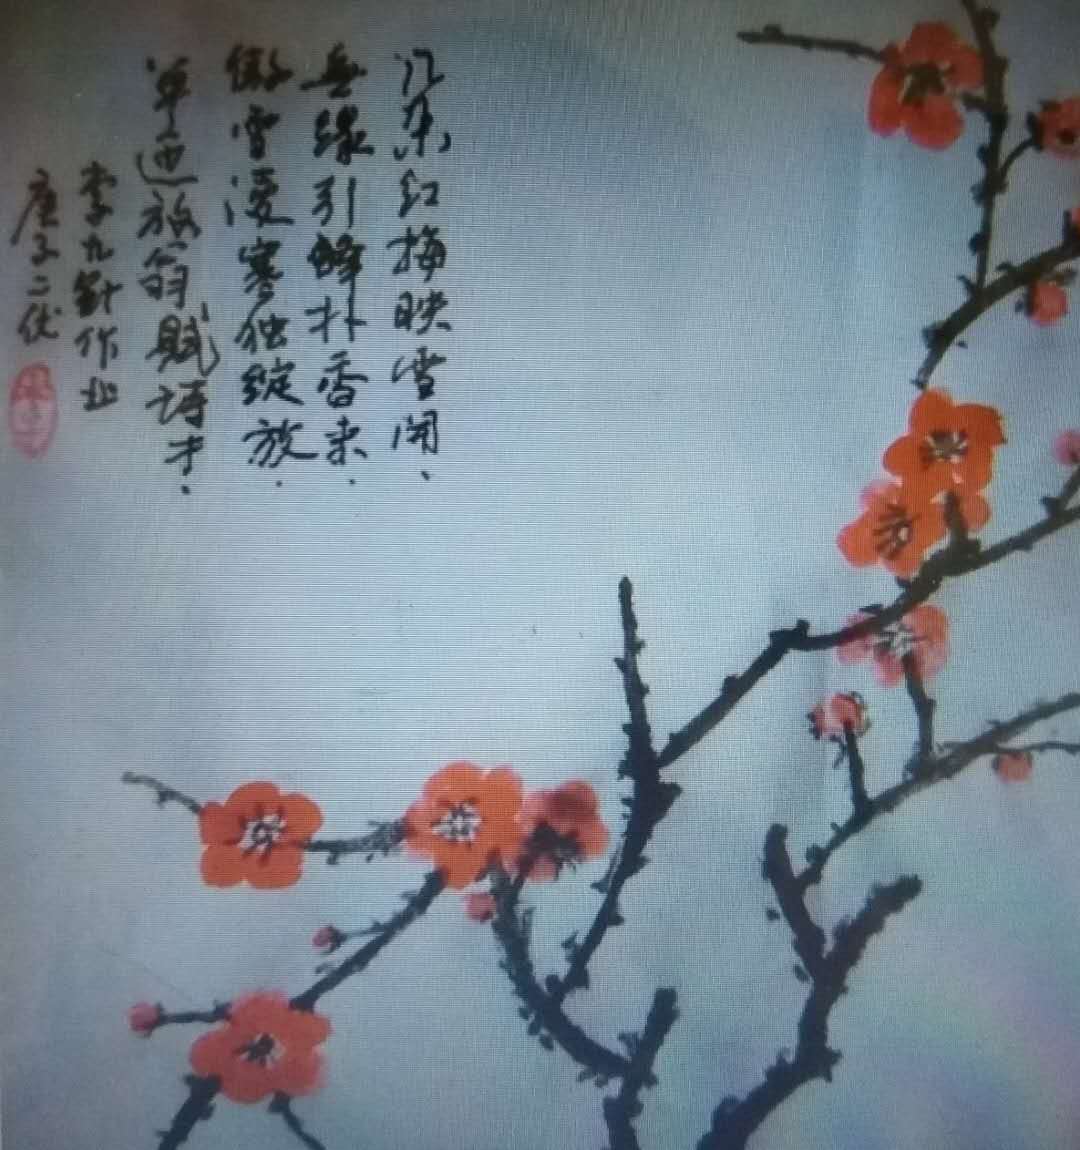 几朵红梅映雪開、
無缘引蜂扑香来.
傲雪凌寒独绽放.
单迎放翁賦诗才.
李九針作业
庚子二伏